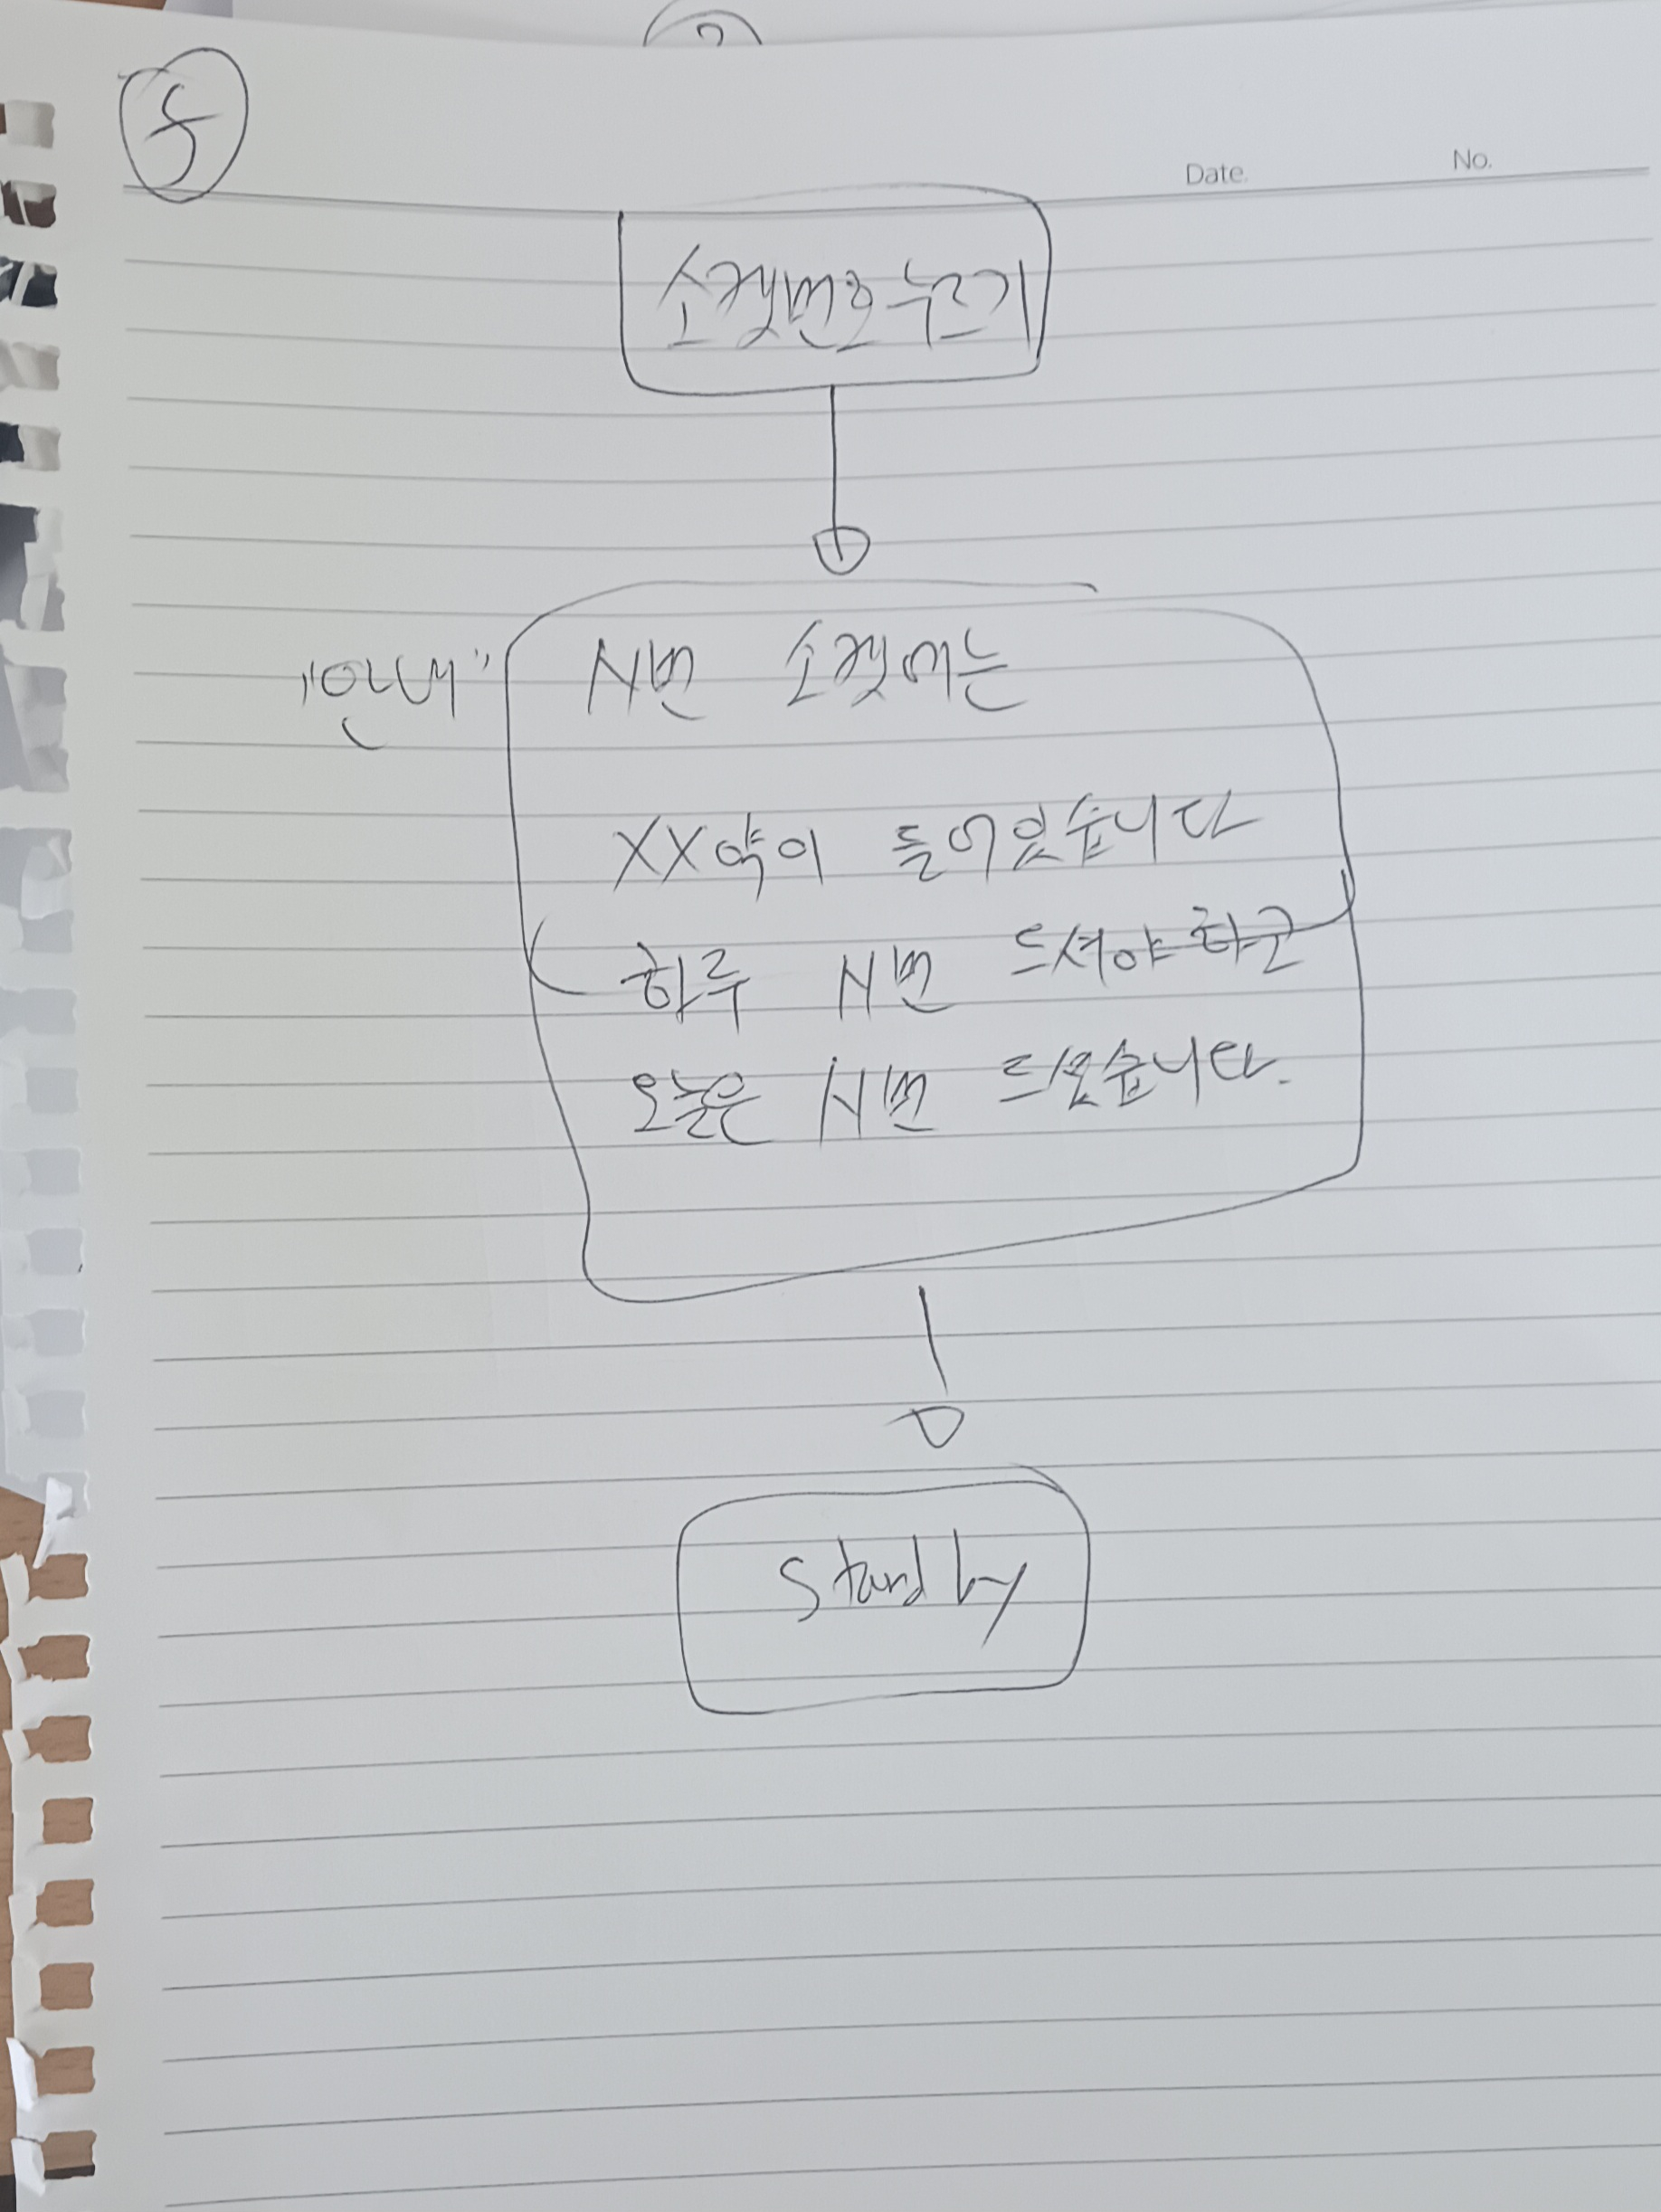 5
Date.
No.
소켓번호누르기
"안내"
N번 소켓에는
XX약이 들어있습니다
하루 N번 드셔야하고
오늘은 N번 드셨습니다.
Stand by